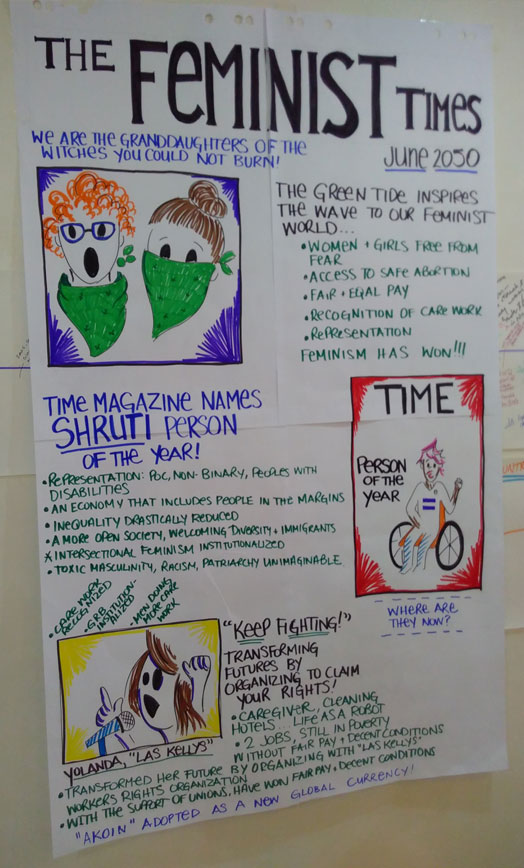 THE FEMINIST TIMES
WE ARE THE GRANDDAUGHTERS OF THE
WITCHES YOU COULD NOT BURN!
JUNE 2050
THE GREEN TIDE INSPIRES
THE WAVE TO OUR FEMINIST
WORLD...
• WOMEN + GIRLS FREE FROM
FEAR
• ACCESS TO SAFE ABORTION
• FAIR + EQAL PAY
• RECOGNITION OF CARE WORK
• REPRESENTATION
FEMINISM HAS WON!!!
TIME MAGAZINE NAMES
SHRUTI PERSON
OF THE YEAR!
• REPRESENTATION: POC, NON-BINARY, PEOPLES WITH
DISABILITIES
• AN ECONOMY THAT INCLUDES PEOPLE IN THE MARGINS
• INEQUALITY DRASTICALLY REDUCED
• A MORE OPEN SOCIETY, WELCOMING DIVERSITY + IMMIGRANTS
* INTERSECTIONAL FEMINISM INSTITUTIONALIZED
• TOXIC MASCULINITY, RACISM, PATRIARCHY UNIMAGINABLE
• CARE WORK
RECOGNIZED
• GRB
INSTITUTION-
ALIZED
• MEN DOING
MORE CARE
WORK
TIME
PERSON
OF THE
YEAR
WHERE ARE
THEY NOW?
"KEEP FIGHTING!"
TRANSFORMING
FUTURES BY
ORGANIZING TO CLAIM
YOUR RIGHTS!
• CAREGIVER, CLEANING
HOTELS... LIFE AS A ROBOT
• 2 JOBS, STILL IN POVERTY
WITHOUT FAIR PAY + DECENT CONDITIONS
YOLANDA, "LAS KELLYS"
• TRANSFORMED HER FUTURE BY ORGANIZING WITH "LAS KELLYS"
WORKERS RIGHTS ORGANIZATION
• WITH THE SUPPORT OF UNIONS, HAVE WON FAIR PAY + DECENT CONDITIONS
"AKOIN" ADOPTED AS A NEW GLOBAL CURRENCY!